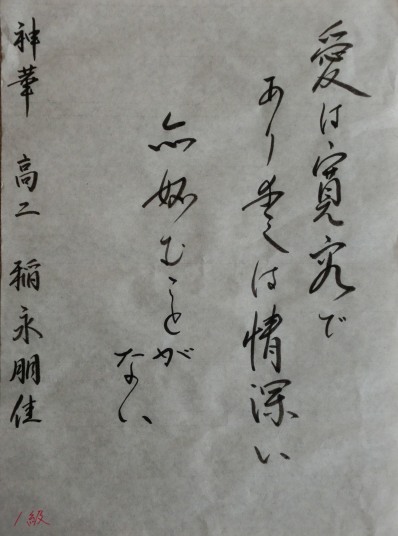 愛は寛容で
あり愛は情深い
亦妬むことが
ない
神華 高二 稲永朋佳
1級